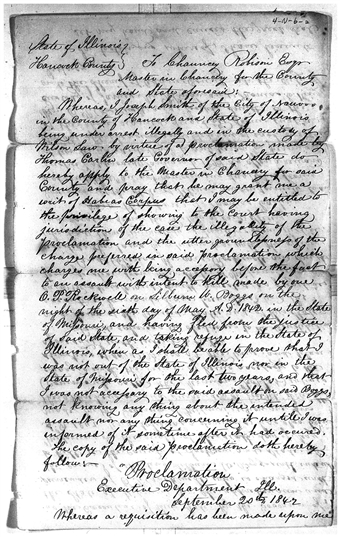 4-N-6-2
State of Illinois }
Hancock County } To Chauncey Robison Esqr
Master in Chancery for the County
and State aforesaid:
Whereas I Joseph Smith of the City of Nauvoo
in the County of Hancock and State of Illinois
being under arrest Illegally and in the custody of
Wilson Law by virtue of a proclamation made by
Thomas Carlin late Governor of said State do
hereby apply to the Master in Chancery for said
County and pray that he may grant me a
writ of Habeas Corpus that I may be entitled to
the privilege of showing to the Court having
jurisdiction of the case the illegality of the
proclamation and the utter groundlessness of the
Charge preferred in said proclamation which
charges me with being accessory before the fact
to an assault with intent to kill made by one
O. P. Rockwell on Lilburn W. Boggs on the
night of the sixth day of May A.D. 1842 in the State
of Missouri, and having fled from the Justice
of said State, and taking refuge in the State of
Illinois, when as I shall be able to prove that I
was not out of the State of Illinois nor in the
State of Missouri for the last two years, and that
I was not accessary to the said assault on said Boggs,
not knowing any thing about the intended
assault nor any thing concerning it until I was
informed of it sometime after it had occured.
The copy of the said Proclamation doth hereby
follow:
"Proclamation
Executive Department Ill.
September 20th 1842
Whereas a requisition has been made upon me